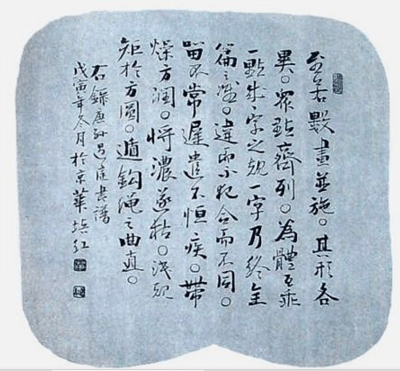 至若數畫並施。其形各
異。眾點齊列。為體互乖
一點成字之規一字乃終全
篇之準。違而不犯合而不同。
留不常遲遣不恒疾。帶
燥方潤。將濃遂枯。泯規
矩於方圓。遁鈎繩之曲直。
右錄唐孫過庭書譜
戊寅年冬月於京華